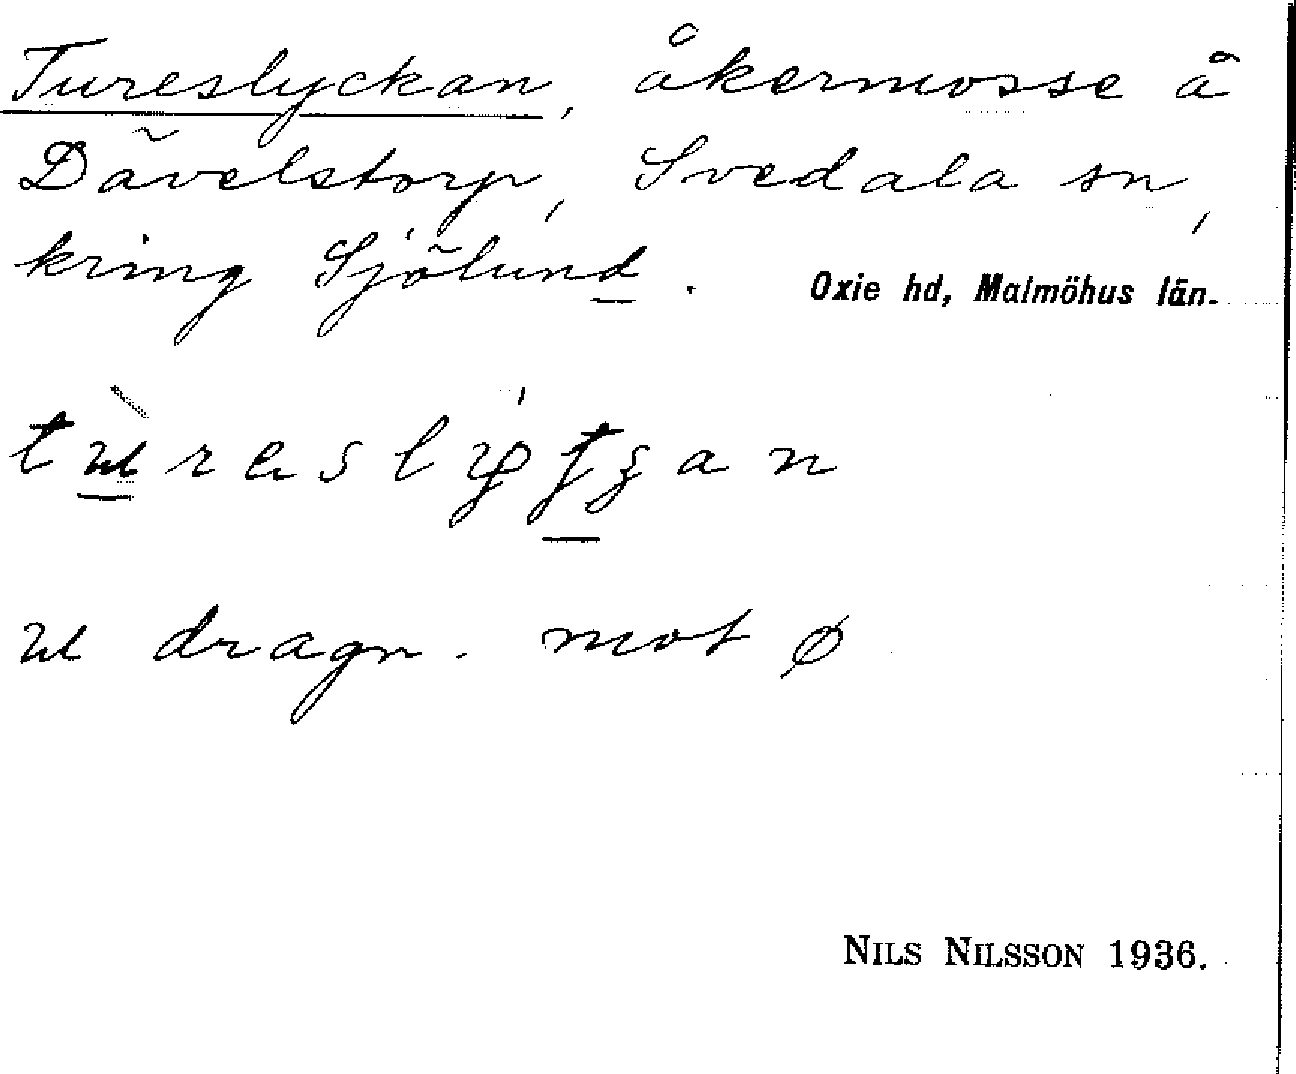 Tureslyckan, åkermosse å
Dävelstorp, Svedala sn,
kring Sjölund.
Oxie hd, Malmöhus län.
u dragn. mot ø
NILS NILSSON 1936.